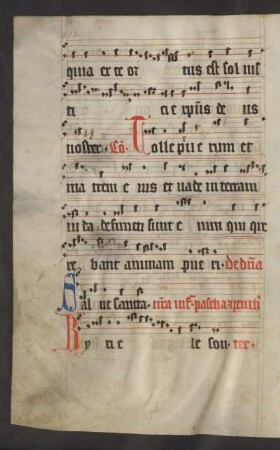 quia ex te or tus est sol ius
ti ci e xp̄us de us
noster. Cō. Tolle pue rum et
ma trem e ius et uade in terram
iu da defuncti sunt e nim qui que
re bant animam pue ri. de dn̄a
Sal ue sancta
Ky ri e le son. tex.